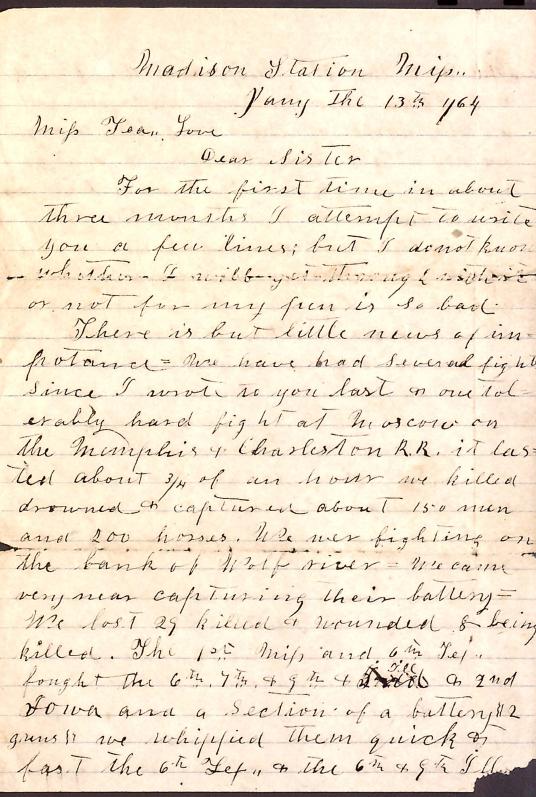 Madison Station Miss..
Jany the 13th 1864
Miss Tea.. Love
Dear Sister
For the first time in about
three months I attempt to write
you a few lines; but I do not know
whether I will get through with it
or not for my pen is so bad.
There is but little news of im-
potance = We have had several fights
since I wrote to you last & one tol-
erably hard fight at Moscow on
the Memphis & Charleston R.R. it las-
ted about 3/4 of an hour we killed
drowned & captured about 150 men
and 200 horses. We wer fighting on
the bank of Wolf river = We came
very near capturing their battery =
We lost 29 killed & wounded & being
killed. The 1st Miss and 6th Tex..
fought the 6th, 7th, & 9th Ill & 2nd
Iowa and a section of a battery "2
guns" we whipped them quick &
fast the 6th Tex.. & the 6th & 9th Ill